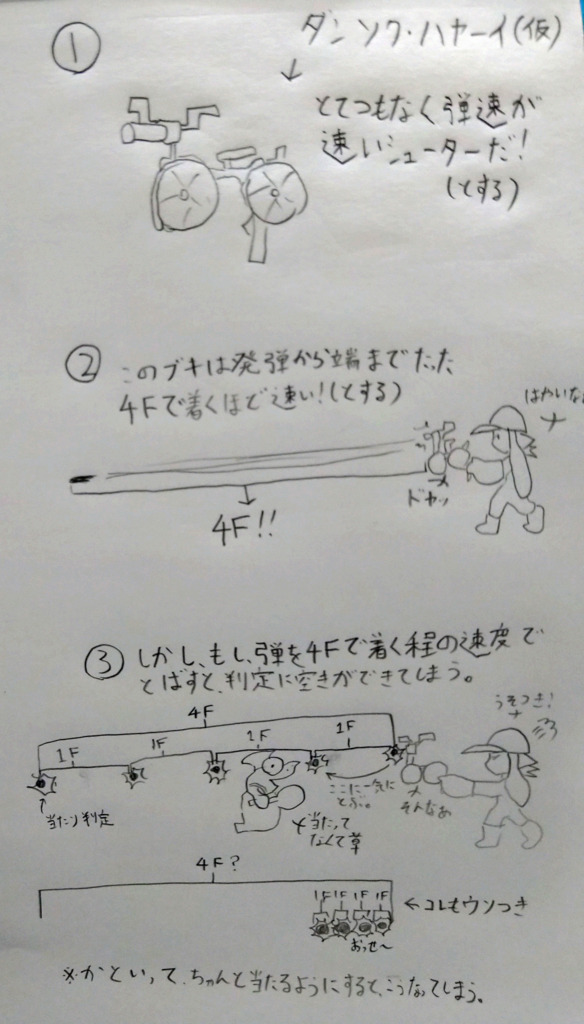 ①
ダンソク・ハヤーイ(仮)
↓
とてつもなく弾速が
速いシューターだ!
(とする)
②
このブキは発弾から端までたった
4Fで着くほど速い!(とする)
はやいなぁ
ドヤッ
4F!!
③
しかし、もし、弾を4Fで着く程の速度で
とばすと、判定に空きができてしまう。
4F
1F
1F
1F
1F
うそつき!
↑
当たり判定
当たって
なくて草
ここに一気に
とぶ。
そんなぁ
4F?
1F 1F 1F 1F
←コレもウソつき
おっせ〜
※かといって、ちゃんと当たるようにすると、こうなってしまう。